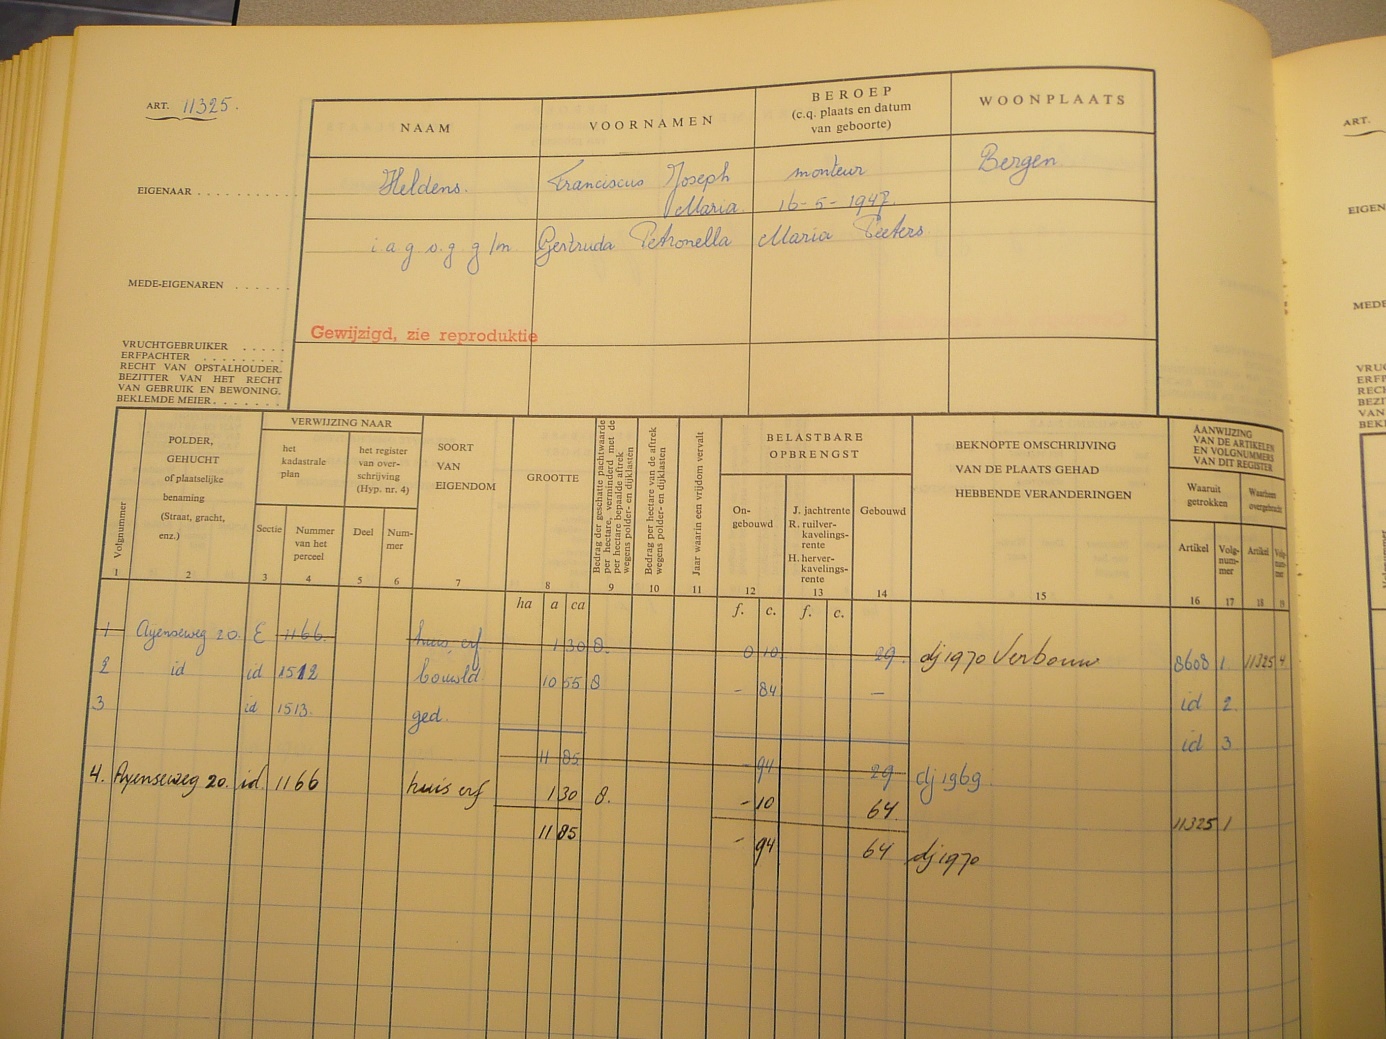 ART. 11325.
NAAM
VOORNAMEN
BEROEP
(c.q. plaats en datum
van geboorte)
WOONPLAATS
EIGENAAR
Heldens.
Franciscus Joseph
Maria
monteur
16-5-1947.
Bergen
i a g o.g. g/m Gertruda Petronella Maria Peeters
MEDE-EIGENAREN
Gewijzigd, zie reproduktie
VRUCHTGEBRUIKER
ERFPACHTER
RECHT VAN OPSTALHOUDER.
BEZITTER VAN HET RECHT
VAN GEBRUIK EN BEWONING.
BEKLEMDE MEIER
Volgnummer
POLDER,
GEHUCHT
of plaatselijke
benaming
(Straat, gracht,
enz.)
VERWIJZING NAAR
het
kadastrale
plan
het register
van over-
schrijving
(Hyp. nr. 4)
Sectie
Nummer
van het
perceel
Deel
Num-
mer
SOORT
VAN
EIGENDOM
GROOTTE
Bedrag der geschatte pachtwaarde
per hectare, verminderd met de
per hectare bepaalde aftrek
wegens polder- en dijklasten
Bedrag per hectare van de aftrek
wegens polder- en dijklasten
Jaar waarin een vrijdom vervalt
BELASTBARE
OPBRENGST
On-
gebouwd
J. jachtrente
R. ruilver-
kavelings-
rente
H. herver-
kavelings-
rente
Gebouwd
BEKNOPTE OMSCHRIJVING
VAN DE PLAATS GEHAD
HEBBENDE VERANDERINGEN
AANWIJZING
VAN DE ARTIKELEN
EN VOLGNUMMERS
VAN DIT REGISTER
Waaruit
getrokken
Waarheen
overgebracht
Artikel
Volg-
num-
mer
Artikel
Volg-
num-
mer
1 2 3 4 5 6 7 8 9 10 11 12 13 14 15 16 17 18 19
ha a ca f. c. f. c.
1 Ayenseweg 20. E 1166. huis, erf 1 30 8. 0 10 29. dj 1970 Verbouw 8608 1 11325 4
2 id id 1512 bouwld 10 55 8 - 84 - id 2.
3 id 1513. ged. id 3
11 85 - 94 29 dj 1969.
4. Ayenseweg 20. id. 1166 huis erf 1 30 8. - 10 64 11325 1
11 85 - 94 64 dj 1970
ART.
EIGEN
MEDE
VRUC
ERFP
RECH
BEZI
VAN
BEKL